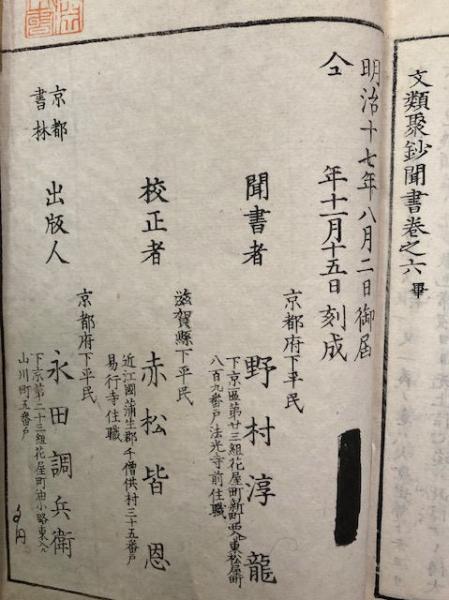 文類聚鈔聞書巻之六 畢
明治十七年八月二日御届
仝 年十一月十五日刻成
京都府下平民
聞書者 野村淳龍
下京區第廿三組花屋町新町西入東松屋町
八百九番戸法光寺前住職
滋賀縣下平民
校正者 赤松皆恩
近江國蒲生郡千僧供村三十五番戸
易行寺住職
京都府下平民
京都書林 出版人 永田調兵衛
下京第二十三組花屋町油小路東入
山川町五番戸